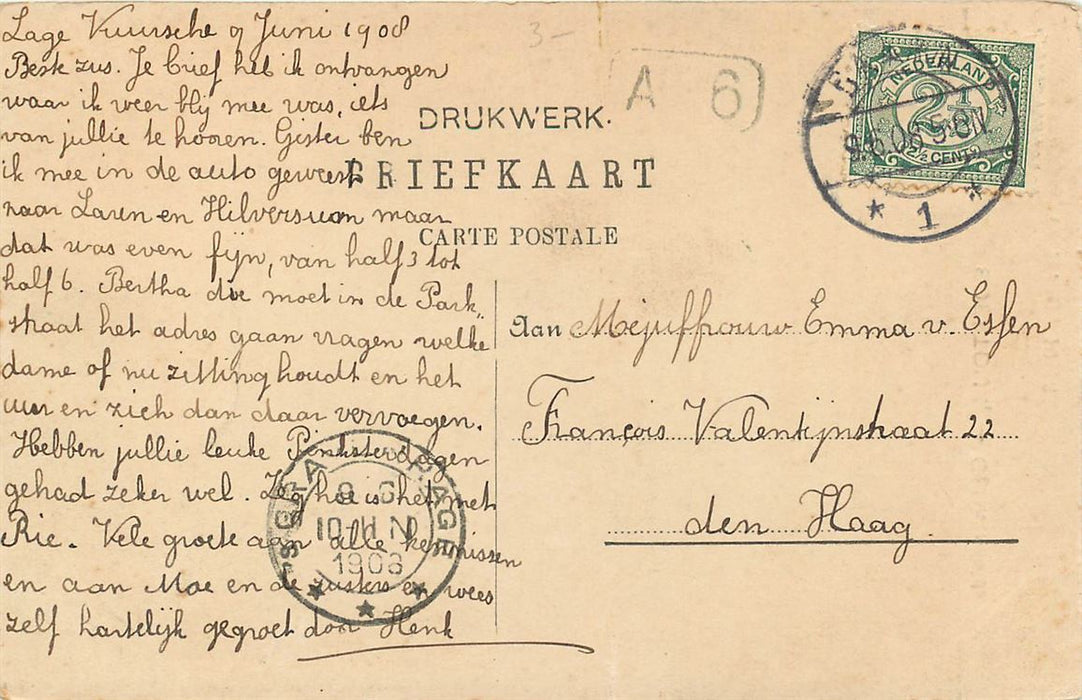 Lage Vuursche 9 Juni 1908
Beste zus. Je brief heb ik ontvangen
waar ik weer blij mee was, iets
van jullie te hooren. Gister ben
ik mee in de auto geweest
naar Laren en Hilversum maar
dat was even fijn, van half 3 tot
half 6. Bertha die moet in de Park„
straat het adres gaan vragen welke
dame of nu zitting houdt en het
uur en zich dan daar vervoegen.
Hebben jullie leuke Pinksterdagen
gehad zeker wel. Zeg hoe is het met
Rie. Vele groete aan alle kennissen
en aan Moe en de zusters en wees
zelf hartelijk gegroet door Henk
3-
A 6
DRUKWERK.
BRIEFKAART
CARTE POSTALE
NEDERLAND
2½
2½ CENT
1
Aan Mejuffrouw Emma v. Essen
François Valentijnstraat 22
den Haag.
'S GRAVENHAGE
10-11 N
1908